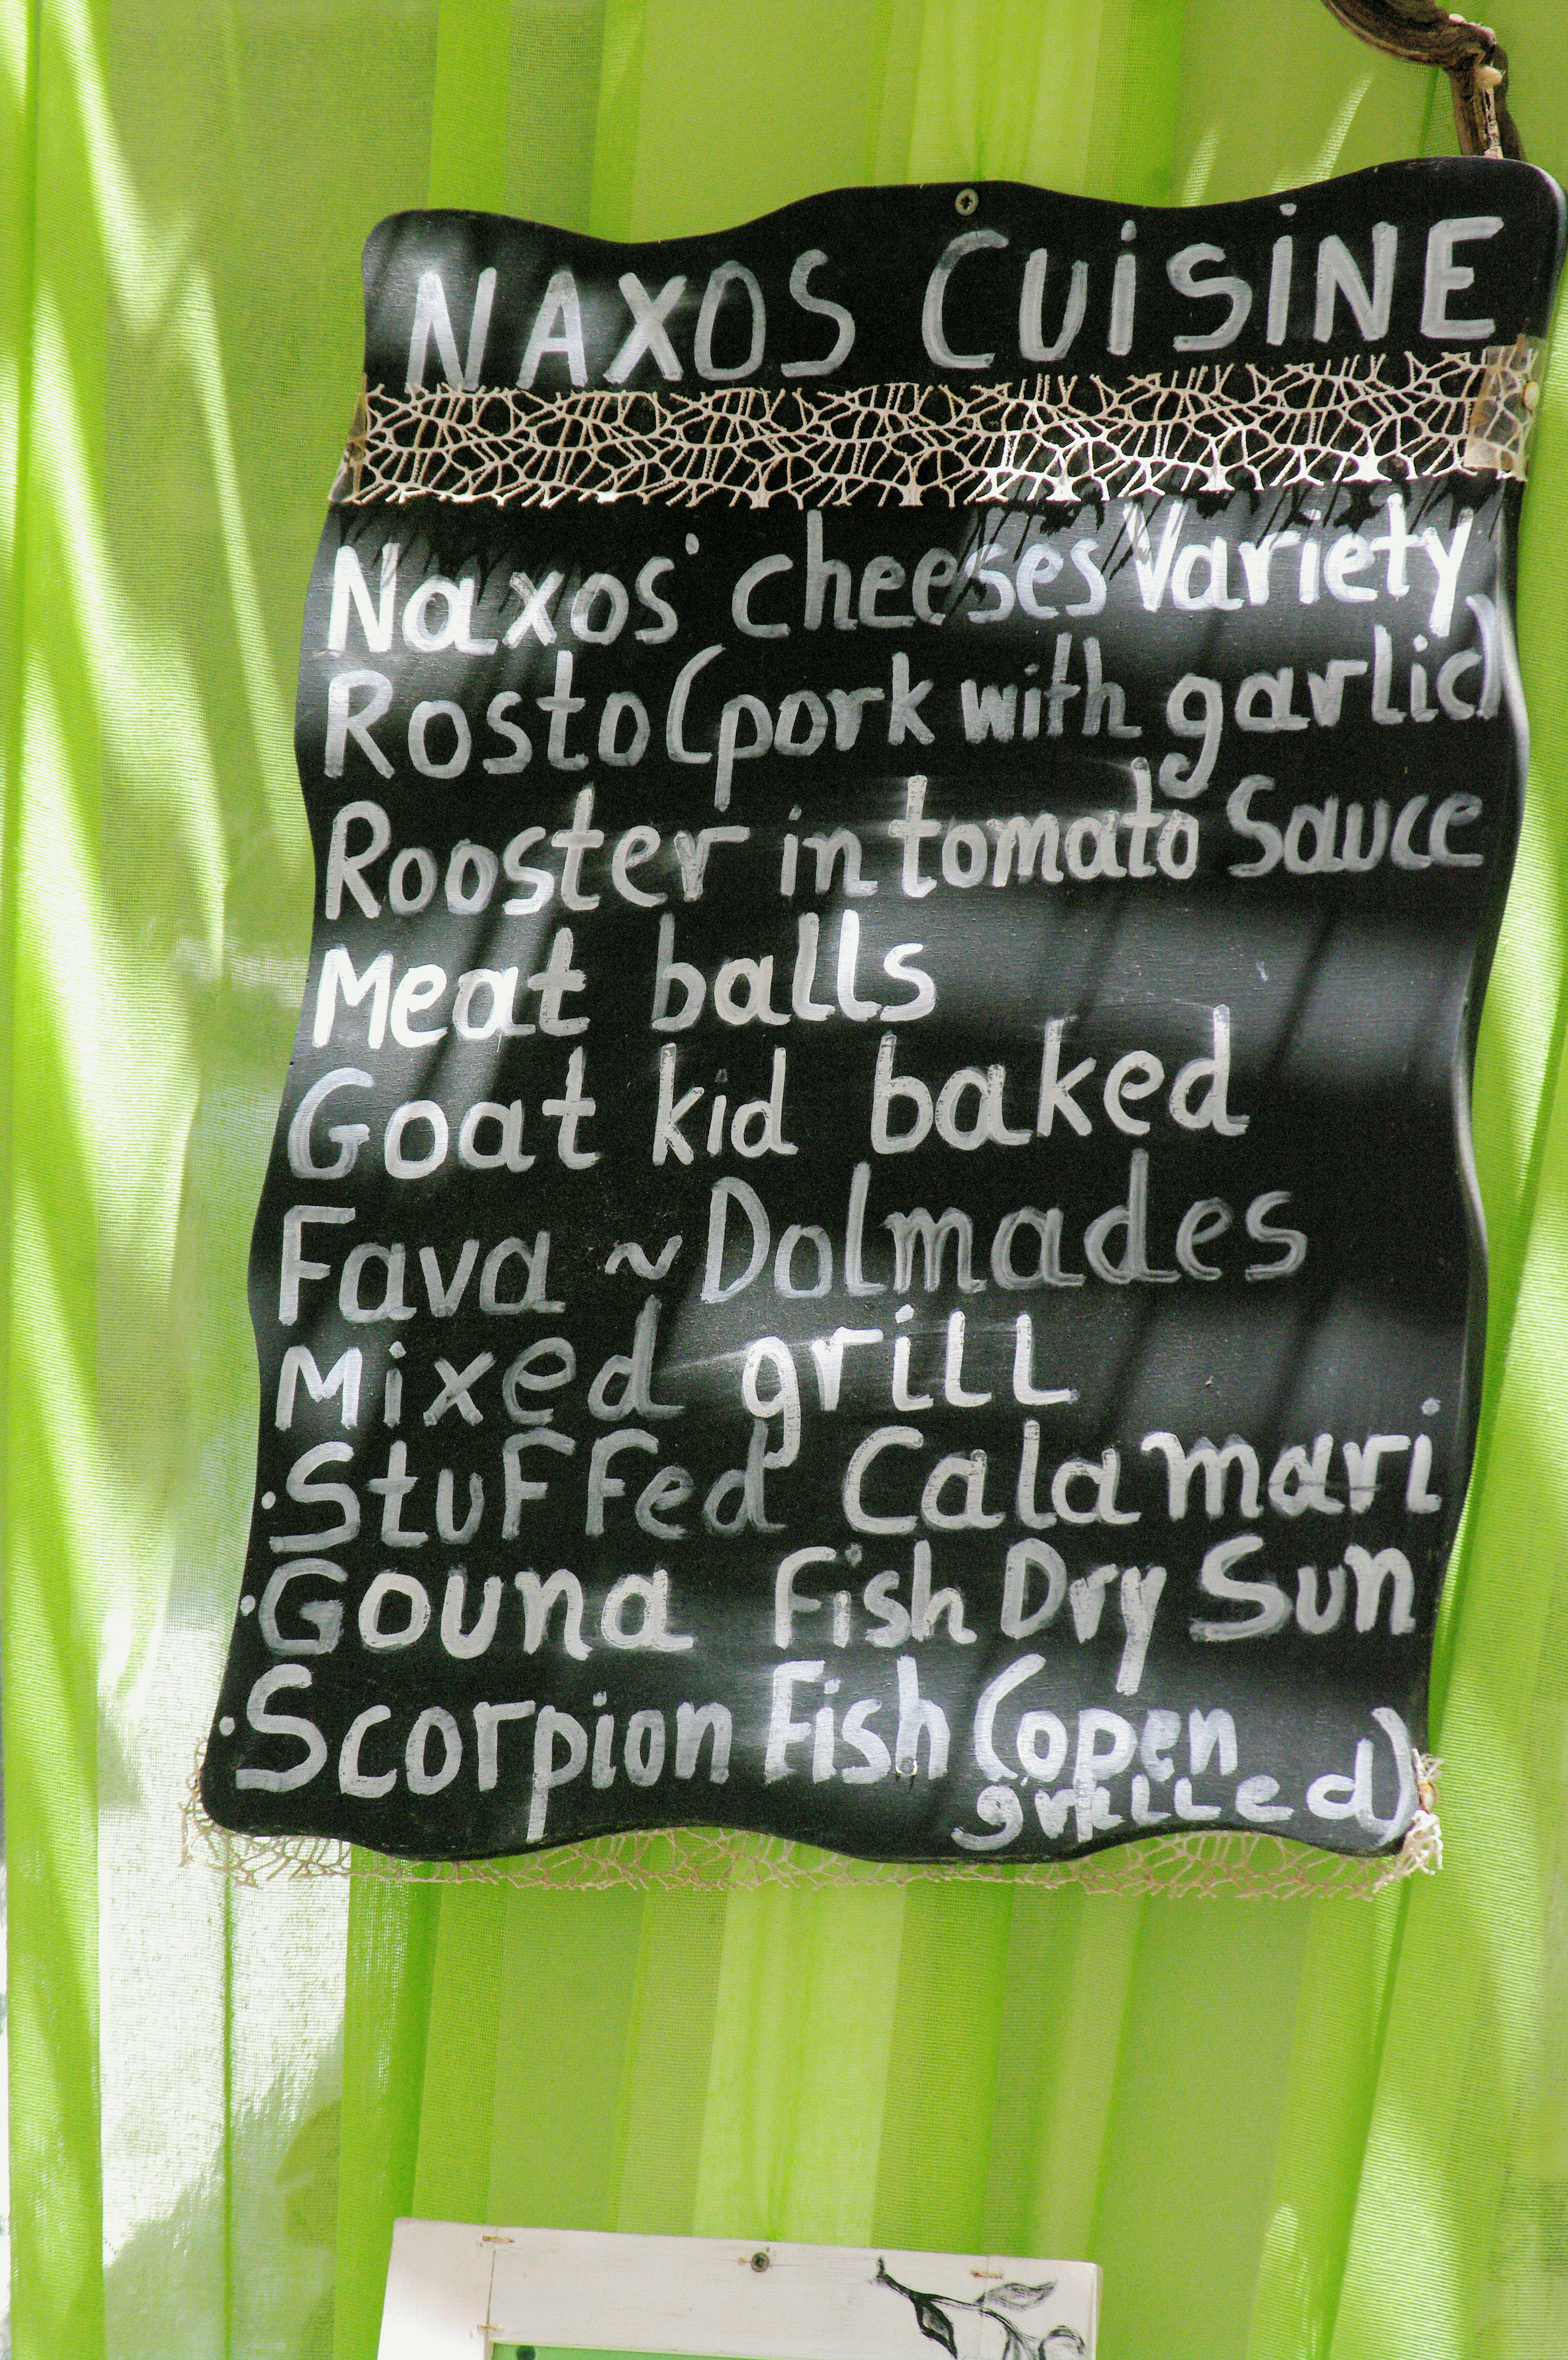 NAXOS CUiSiNE
Naxos' cheeses Variety
Rosto (pork with garlic)
Rooster in tomato Sauce
Meat balls
Goat kid baked
Fava ~ Dolmades
Mixed grill
·Stuffed Calamari
·Gouna Fish Dry Sun
·Scorpion Fish (open
grilled)